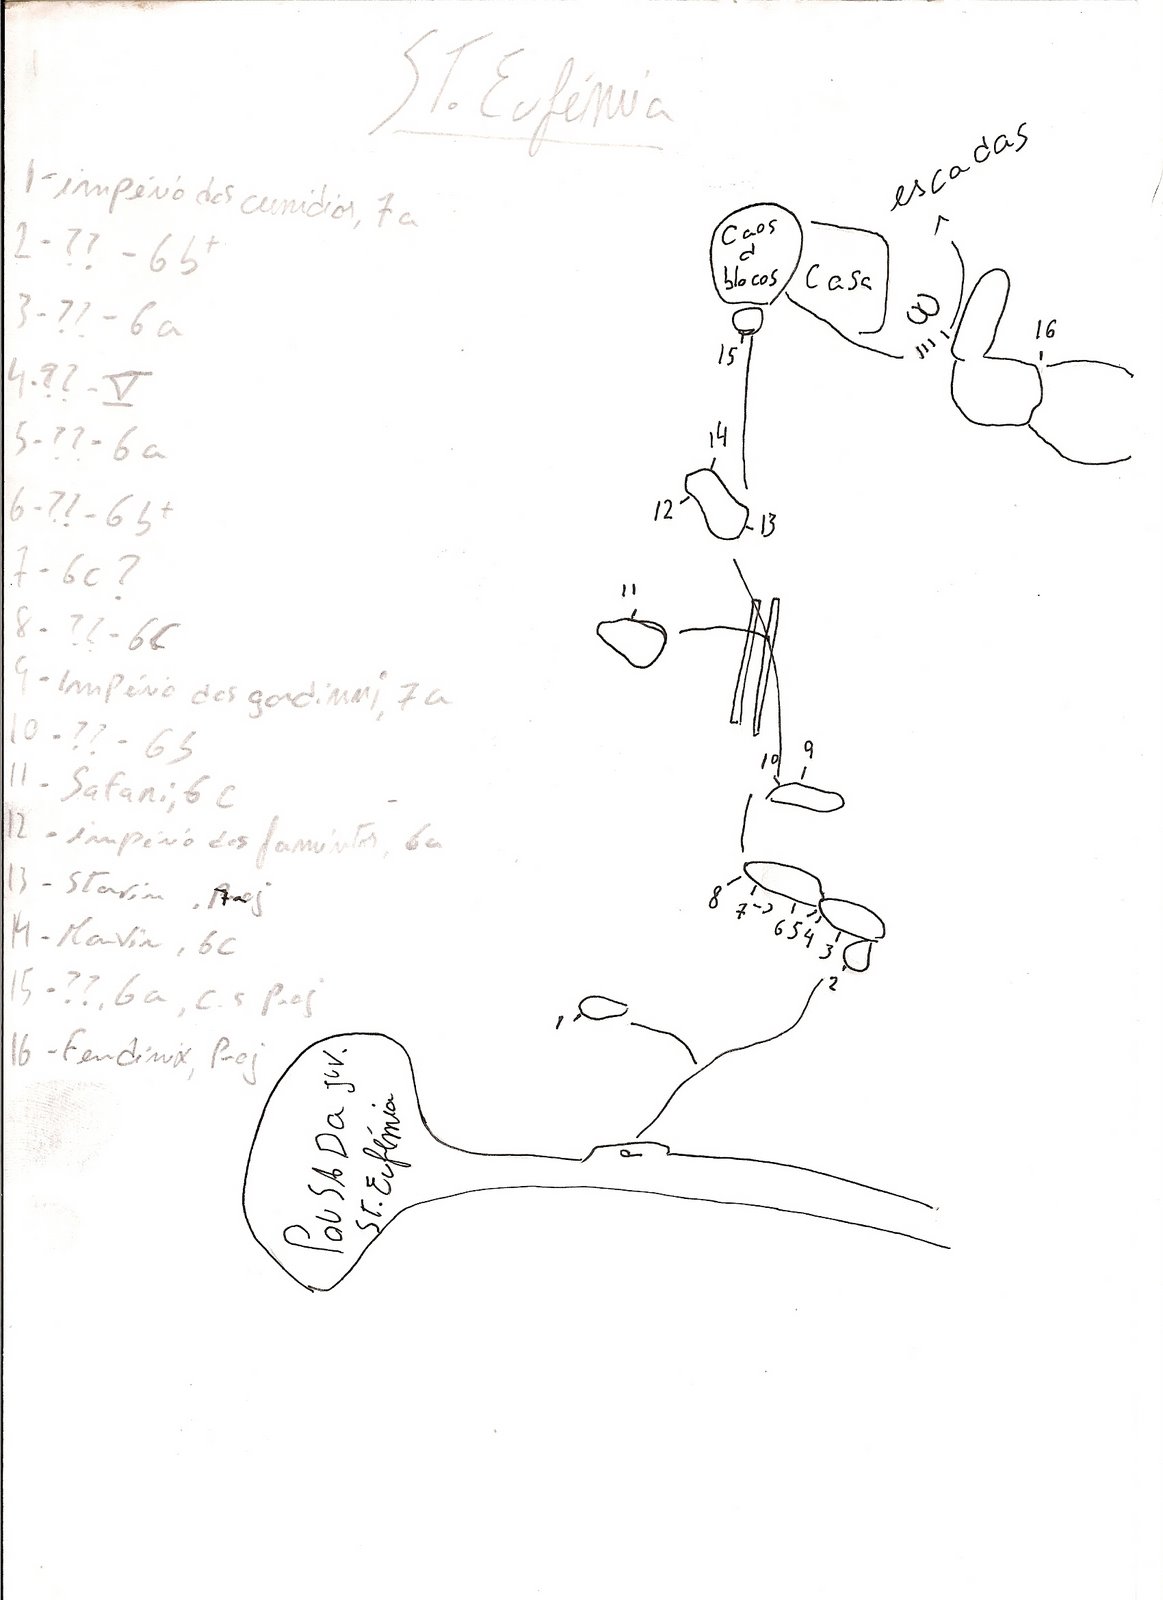 ST. Eufémia
1- império dos cunidios, 7a
2 - ?? - 6b+
3 - ?? - 6a
4 - ?? - V
5 - ?? - 6a
6 - ?? - 6b+
7 - 6c?
8 - ?? - 6c
9 - Império dos 7a
10 - ?? - 6b
11 - Safari, 6c
12 - império dos famintos, 6a
13 - Proj
14 - 6c
15 - ??, 6a, c.s Proj
16 - Fendinix, Proj
escadas
Caos
d
blocos
Casa
16
15
14
12
13
11
10
9
8
7
6
5
4
3
2
1
P
PousaDa juv.
ST. Eufémia